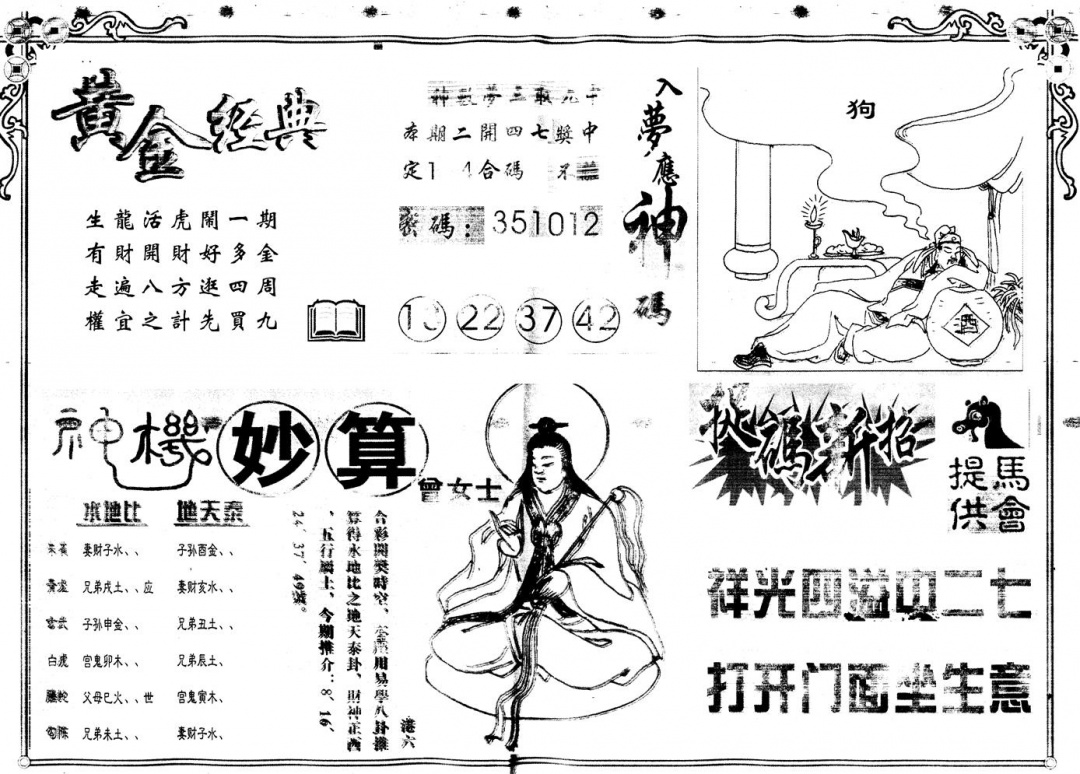 黃金經典
生龍活虎鬧一期
有財開財好多金
走遍八方逛四周
權宜之計先買九
本期二開四七獎中
定1 4合碼
密碼：351012
22 37 42
入夢應神碼
狗
酉
神機妙算
曾女士
水地比 地天泰
妻財子水、、 子孙酉金、、
兄弟戌土、、应 妻財亥水、、
玄武 子孙申金、、 兄弟丑土、、
白虎 宫鬼卯木、、 兄弟辰土、
螣蛇 父母巳火、、世 宫鬼寅木、
勾陈 兄弟未土、、 妻財子水、
港六
合彩開獎時空，用易學八卦推
算得水地比之地天泰卦，財神正西
，五行屬土，今期推介：8、16、
24、37、49號。
找碼新招
馬會
提供
祥光四溢中二七
打开门面坐生意